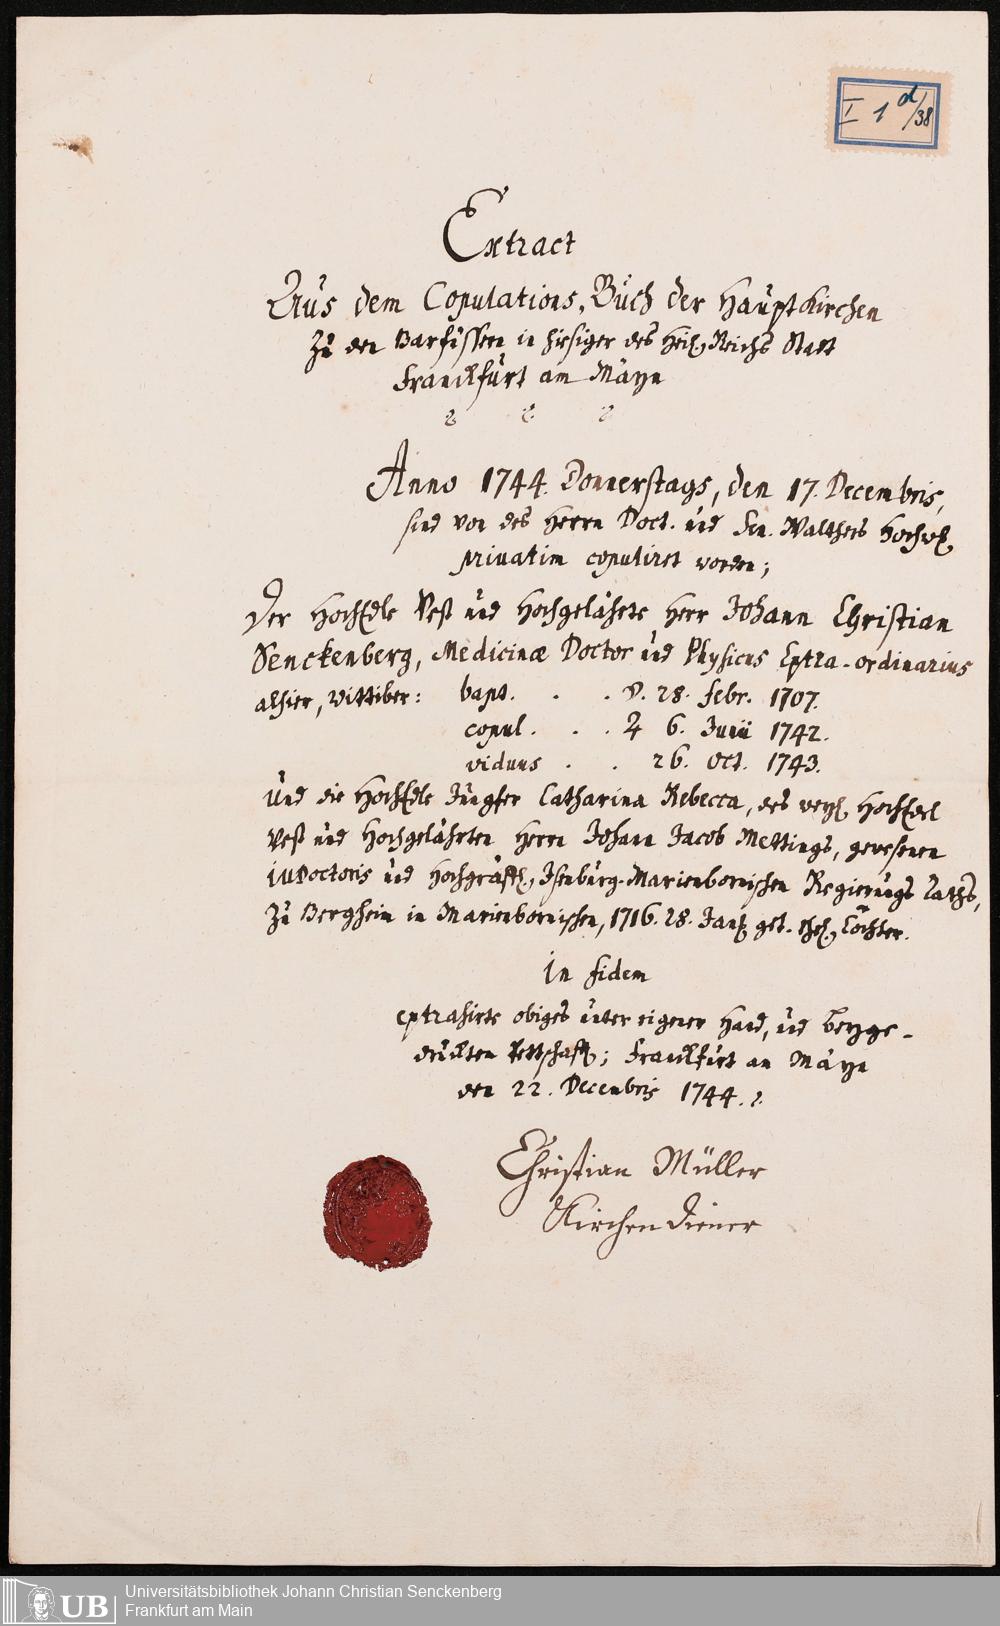 I 1 d/38
Extract
Aus dem Copulations-Buch der Hauptkirchen
Zu den Barfüssern in hiesiger des Heil. Reichs Statt
Franckfurt am Mäyn
Anno 1744. Donnerstags, den 17. Decembris,
sind von des Herrn Doct. und Sen. Walthers Hochw.
privatim copuliret worden;
Der HochEdle Vest und Hochgelährte Herr Johann Christian
Senckenberg, Medicinæ Doctor und Physicus Extra-ordinarius
alhier, Wittiber: bapt. . . . d. 28. Febr. 1707.
copul. . . . 6. Junii 1742.
viduus . . 26. Oct. 1743.
Und die HochEdle Jungfer Catharina Rebecca, des weyl. HochEdel
Vest und Hochgelährten Herrn Johann Jacob Mettings, gewesenen
Doctoris und Hochgräffl. Isenburg-Marienbornischen Regierungs Raths,
Zu Bergheim in Marienbornischen, 1716. 28. Jan. get. ehel. Tochter.
in fidem
extrahirte obiges unter eigener Hand, und beyge-
druckten Pettschafft; Franckfurt am Mäyn
den 22. Decembris 1744.
Christian Müller
Kirchen Diener
UB
Universitätsbibliothek Johann Christian Senckenberg
Frankfurt am Main